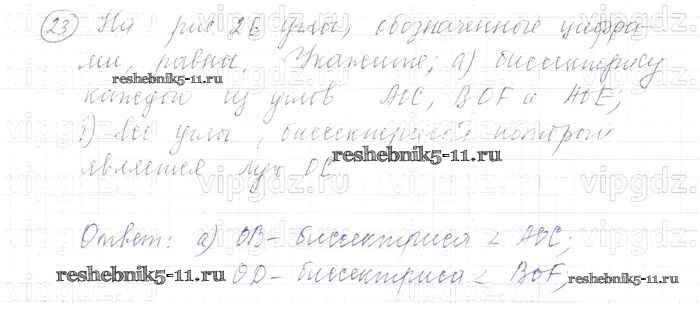 23 На рис 26 углы, обозначенные цифра
ми, равны. Укажите; а) биссектрису
reshebnik5-11.ru
каждой из углов АОС, BOF и АОЕ;
б) все углы, биссектрисой которой
reshebnik5-11.ru
является луч ОС
vipgdz.ru
Ответ: а) ОВ - биссектриса ∠ АОС;
reshebnik5-11.ru OD - биссектриса ∠ BOF, reshebnik5-11.ru